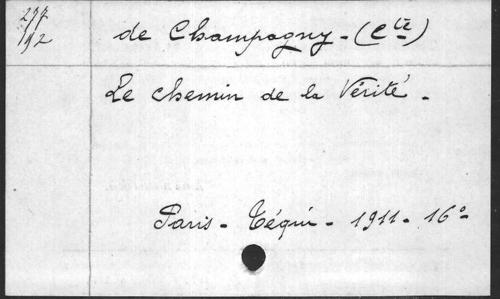 277
192
de Champagny - (Cte)
Le chemin de la Vérité -
Paris - Téqui - 1911 - 16°